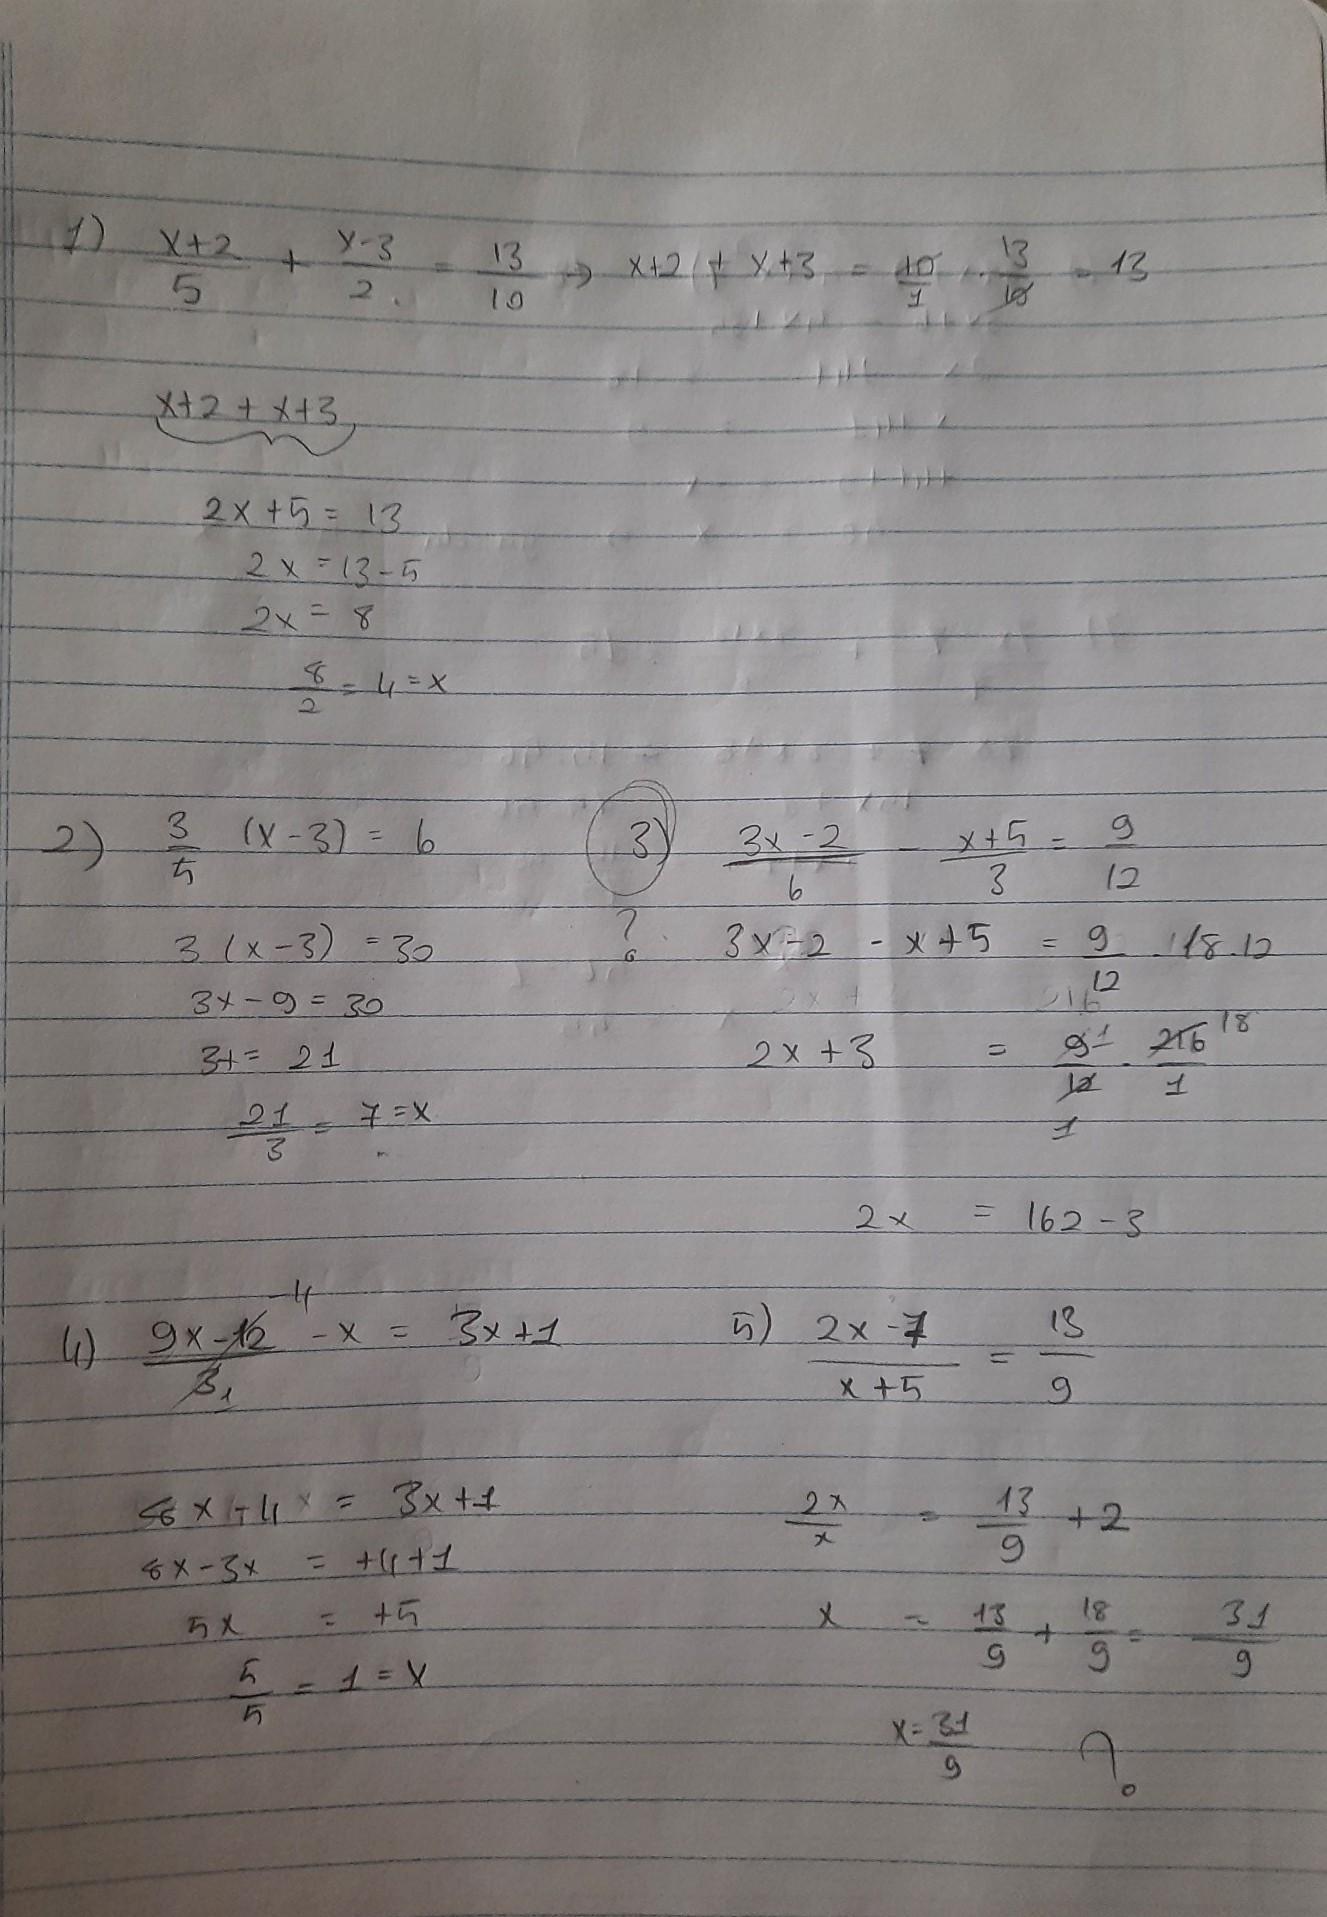 1) (x+2)/5 + (x-3)/2 = 13/10 → x+2 + x+3 = 10/1 · 13/10 = 13
x+2 + x+3
2x+5 = 13
2x = 13-5
2x = 8
8/2 = 4 = x
2) 3/5 (x-3) = 6
3 (x-3) = 30
3x-9 = 30
3x = 21
21/3 = 7 = x
3) (3x-2)/6 - (x+5)/3 = 9/12
? 3x-2 - x+5 = 9/12 · 18.12
2x+3 = 9 1/12 1 · 216 18/1
2x = 162-3
4) (9x-12 4)/3 1 - x = 3x+1
8x-4 = 3x+1
8x-3x = +4+1
5x = +5
5/5 = 1 = x
5) (2x-7)/(x+5) = 13/9
2x/x = 13/9 + 2
x = 13/9 + 18/9 = 31/9
x = 31/9 ?